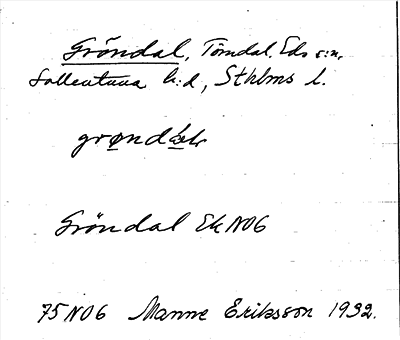 Gröndal, Torndal, Eds s:n,
Sollentuna h:d, Sthlms l.
Gröndal Ek N06
75 N06 Manne Eriksson 1932.